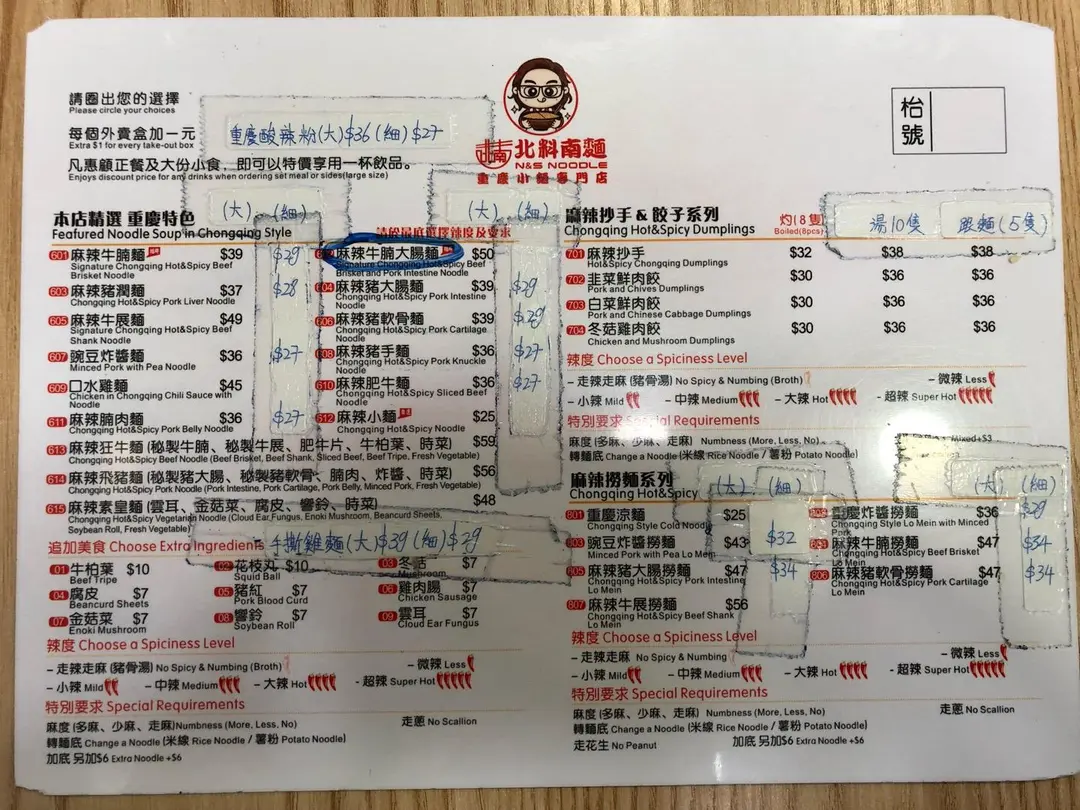 請圈出您的選擇
Please circle your choices
每個外賣盒加一元
Extra $1 for every take-out box
重慶酸辣粉(大)$36 (細)$27
凡惠顧正餐及大份小食，即可以特價享用一杯飲品。
Enjoys discount price for any drinks when ordering set meal or sides(large size)
北料南麵
N&S NOODLE
重慶小麵專門店
枱號
本店精選 重慶特色
Featured Noodle Soup in Chongqing Style
(大) (細)
(大) (細)
請於最底選擇辣度及要求
601 麻辣牛腩麵 $39 $29
Signature Chongqing Hot&Spicy Beef Brisket Noodle
麻辣牛腩大腸麵 $50
Signature Chongqing Hot&Spicy Beef Brisket and Pork Intestine Noodle
603 麻辣豬潤麵 $37 $28
Chongqing Hot&Spicy Pork Liver Noodle
604 麻辣豬大腸麵 $39 $29
Chongqing Hot&Spicy Pork Intestine Noodle
605 麻辣牛展麵 $49
Signature Chongqing Hot&Spicy Beef Shank Noodle
606 麻辣豬軟骨麵 $39 $29
Chongqing Hot&Spicy Pork Cartilage Noodle
607 豌豆炸醬麵 $36 $27
Minced Pork with Pea Noodle
608 麻辣豬手麵 $36 $27
Chongqing Hot&Spicy Pork Knuckle Noodle
609 口水雞麵 $45
Chicken in Chongqing Chili Sauce with Noodle
610 麻辣肥牛麵 $36 $27
Chongqing Hot&Spicy Sliced Beef Noodle
611 麻辣腩肉麵 $36 $27
Chongqing Hot&Spicy Pork Belly Noodle
612 麻辣小麵 $25
613 麻辣狂牛麵 (秘製牛腩、秘製牛展、肥牛片、牛柏葉、時菜) $59
Chongqing Hot&Spicy Beef Noodle (Beef Brisket, Beef Shank, Sliced Beef, Beef Tripe, Fresh Vegetable)
614 麻辣飛豬麵 (秘製豬大腸、秘製豬軟骨、腩肉、炸醬、時菜) $56
Chongqing Hot&Spicy Pork Noodle (Pork Intestine, Pork Cartilage, Pork Belly, Minced Pork, Fresh Vegetable)
615 麻辣素皇麵 (雲耳、金菇菜、腐皮、響鈴、時菜) $48
Chongqing Hot&Spicy Vegetarian Noodle (Cloud Ear Fungus, Enoki Mushroom, Beancurd Sheets, Soybean Roll, Fresh Vegetable)
追加美食 Choose Extra Ingredients
手撕雞麵(大)$39 (細)$29
01 牛柏葉 $10
Beef Tripe
02 花枝丸 $10
Squid Ball
03 冬菇 $7
Mushroom
04 腐皮 $7
Beancurd Sheets
05 豬紅 $7
Pork Blood Curd
雞肉腸 $7
Chicken Sausage
07 金菇菜 $7
Enoki Mushroom
08 響鈴 $7
Soybean Roll
09 雲耳 $7
Cloud Ear Fungus
辣度 Choose a Spiciness Level
- 走辣走麻 (豬骨湯) No Spicy & Numbing (Broth)
- 微辣 Less
- 小辣 Mild
- 中辣 Medium
- 大辣 Hot
- 超辣 Super Hot
特別要求 Special Requirements
麻度 (多麻、少麻、走麻)Numbness (More, Less, No)
走蔥 No Scallion
轉麵底 Change a Noodle (米線 Rice Noodle / 薯粉 Potato Noodle)
加底 另加$6 Extra Noodle +$6
麻辣抄手 & 餃子系列
Chongqing Hot&Spicy Dumplings
灼(8隻)
Boiled(8pcs)
湯10隻
跟麵(5隻)
701 麻辣抄手 $32 $38 $38
Hot&Spicy Chongqing Dumplings
702 韭菜鮮肉餃 $30 $36 $36
Pork and Chives Dumplings
703 白菜鮮肉餃 $30 $36 $36
Pork and Chinese Cabbage Dumplings
704 冬菇雞肉餃 $30 $36 $36
Chicken and Mushroom Dumplings
辣度 Choose a Spiciness Level
- 走辣走麻 (豬骨湯) No Spicy & Numbing (Broth)
- 微辣 Less
- 小辣 Mild
- 中辣 Medium
- 大辣 Hot
- 超辣 Super Hot
特別要求 Special Requirements
麻度 (多麻、少麻、走麻) Numbness (More, Less, No)
Mixed+$3
轉麵底 Change a Noodle (米線 Rice Noodle / 薯粉 Potato Noodle)
麻辣撈麵系列
Chongqing Hot&Spicy
(大) (細)
(大) (細)
重慶涼麵 $25
Chongqing Style Cold Noodle
重慶炸醬撈麵 $36 $29
Chongqing Style Lo Mein with Minced Pork
豌豆炸醬撈麵 $43 $32
Minced Pork with Pea Lo Mein
麻辣牛腩撈麵 $47 $34
Chongqing Hot&Spicy Beef Brisket Lo Mein
麻辣豬大腸撈麵 $47 $34
Chongqing Hot&Spicy Pork Intestine Lo Mein
806 麻辣豬軟骨撈麵 $47 $34
Chongqing Hot&Spicy Pork Cartilage Lo Mein
807 麻辣牛展撈麵 $56
Chongqing Hot&Spicy Beef Shank Lo Mein
辣度 Choose a Spiciness Level
- 走辣走麻 No Spicy & Numbing
- 微辣 Less
- 小辣 Mild
- 中辣 Medium
- 大辣 Hot
- 超辣 Super Hot
特別要求 Special Requirements
麻度 (多麻、少麻、走麻) Numbness (More, Less, No)
走蔥 No Scallion
轉麵底 Change a Noodle (米線 Rice Noodle / 薯粉 Potato Noodle)
走花生 No Peanut
加底 另加$6 Extra Noodle +$6